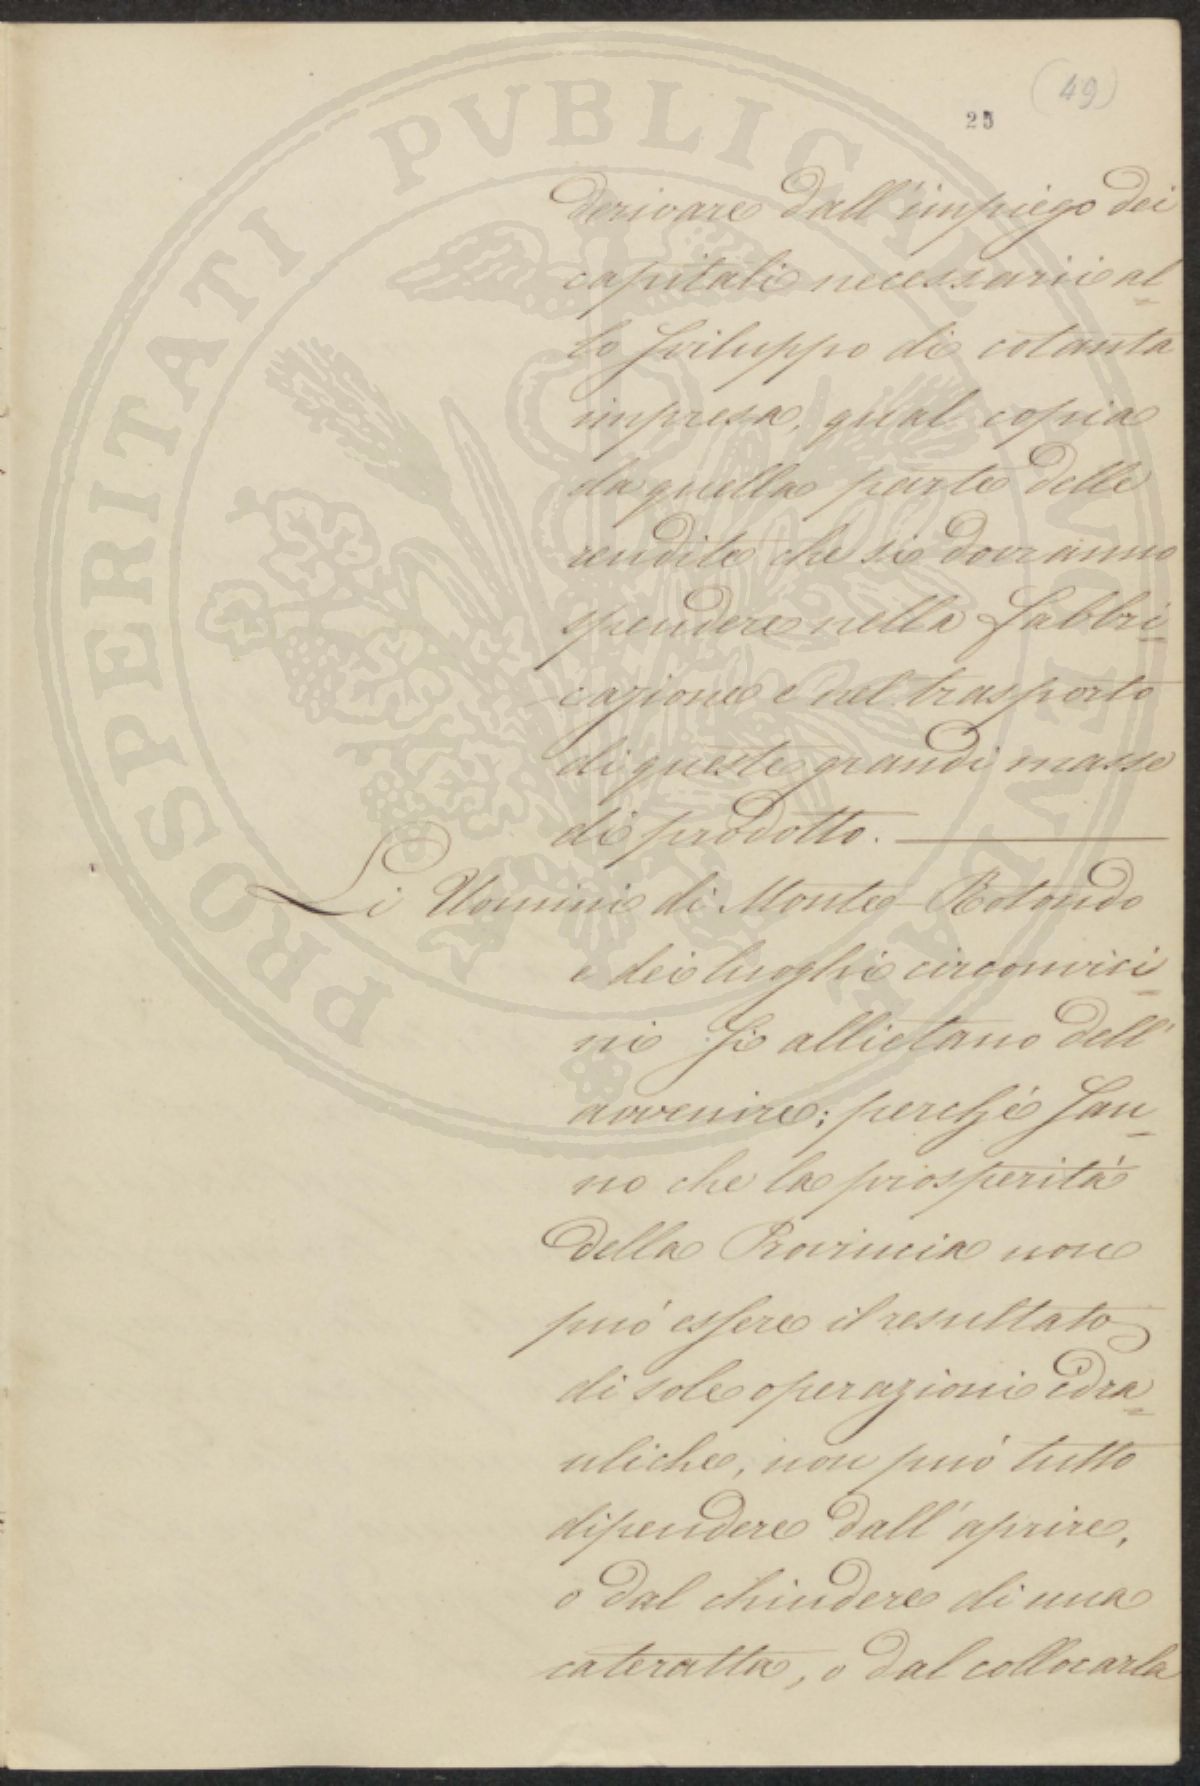 (49)
25
derivare dall'impiego dei
capitali necessarii al=
lo sviluppo di cotanta
impresa, qual copia
da quella parte delle
rendite che si dovranno
spendere nella fabbri=
cazione e nel trasporto
di queste grandi masse
di prodotto.
Li Uomini di Monte-Rotondo
e dei luoghi circonvici=
ni si allietano dell'
avvenire; perché san=
no che la prosperità
della Provincia non
può essere il resultato
di sole operazioni idra=
uliche, non può tutto
dipendere dall'aprire,
o dal chiudere di una
cateratta, o dal collocarla
PROSPERITATI PVBLICAE